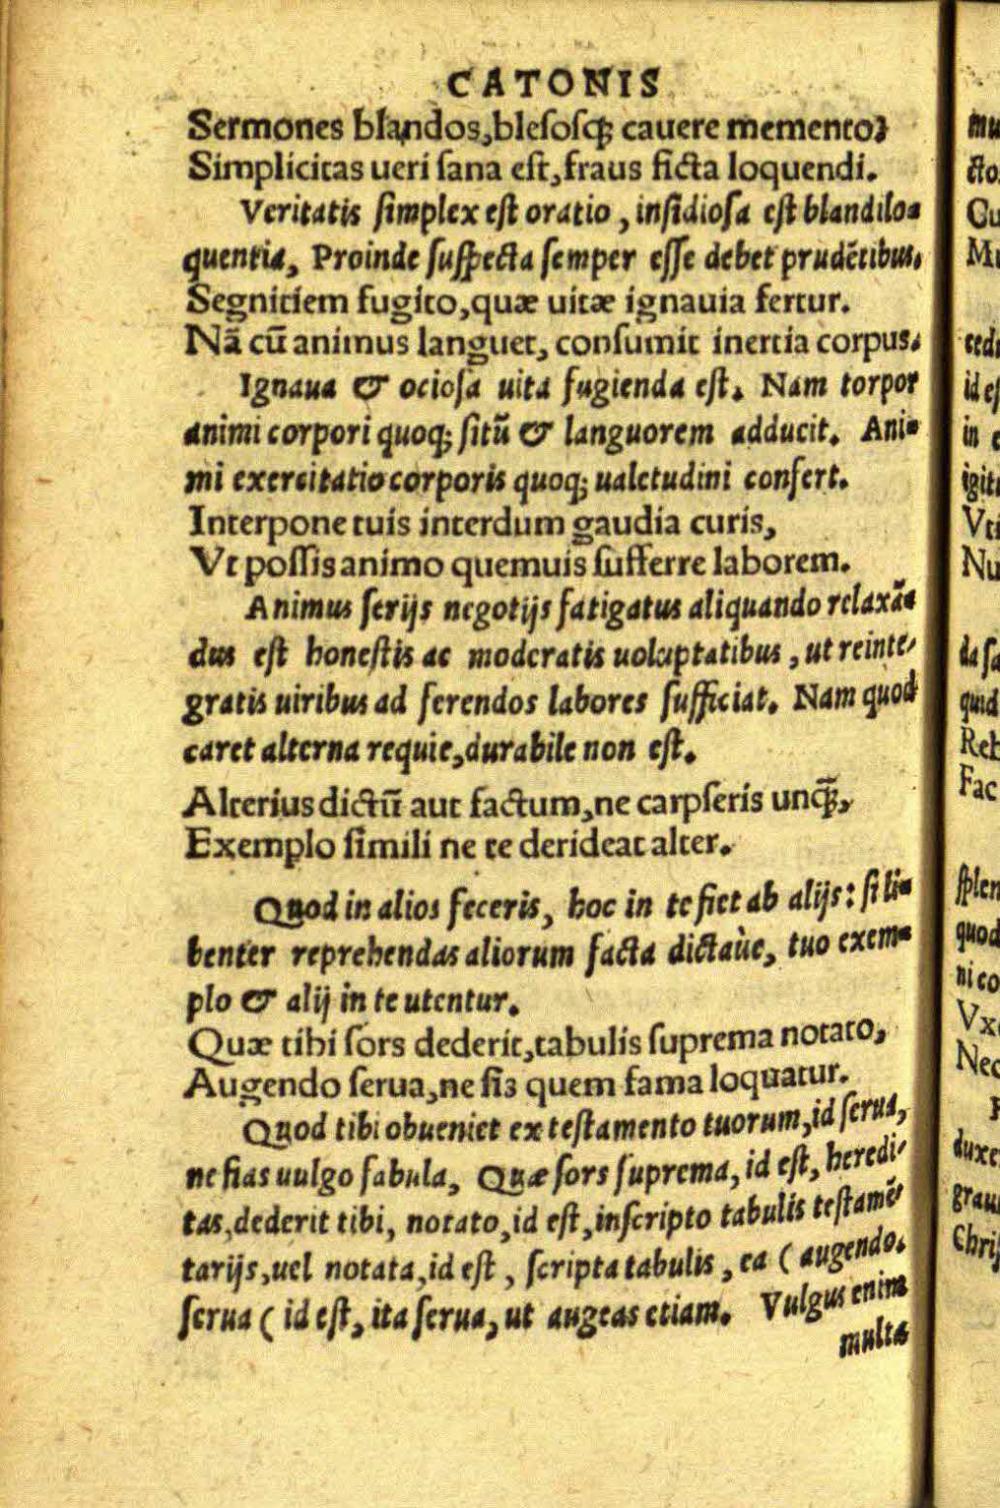 CATONIS
Sermones blandos, blesosq; cauere memento:
Simplicitas ueri sana est, fraus ficta loquendi.
Veritatis simplex est oratio, insidiosa est blandilo-
quentia, Proinde suspecta semper esse debet prudētibus.
Segnitiem fugito, quæ uitæ ignauia fertur.
Nā cū animus languet, consumit inertia corpus.
Ignaua & ociosa uita fugienda est. Nam torpor
animi corpori quoq; sitū & languorem adducit. Ani-
mi exercitatio corporis quoq; ualetudini confert.
Interpone tuis interdum gaudia curis,
Vt possis animo quemuis sufferre laborem.
Animus serijs negotijs fatigatus aliquando relaxā-
dus est honestis ac moderatis uoluptatibus, ut reinte-
gratis uiribus ad ferendos labores sufficiat. Nam quod
caret alterna requie, durabile non est.
Alterius dictū aut factum, ne carpseris unq̄;,
Exemplo simili ne te derideat alter.
Quod in alios feceris, hoc in te fiet ab alijs: si li-
benter reprehendas aliorum facta dictaùe, tuo exem-
plo & alij in te utentur.
Quæ tibi sors dederit, tabulis suprema notato,
Augendo serua, ne sis quem fama loquatur.
Quod tibi obueniet ex testamento tuorum, id serua,
ne fias uulgo fabula, Quæ sors suprema, id est, heredi-
tas, dederit tibi, notato, id est, inscripto tabulis testamē-
tarijs, uel notata, id est, scripta tabulis, ea ( augendo.
serua ( id est, ita serua, ut augeas etiam. Vulgus enim
multa